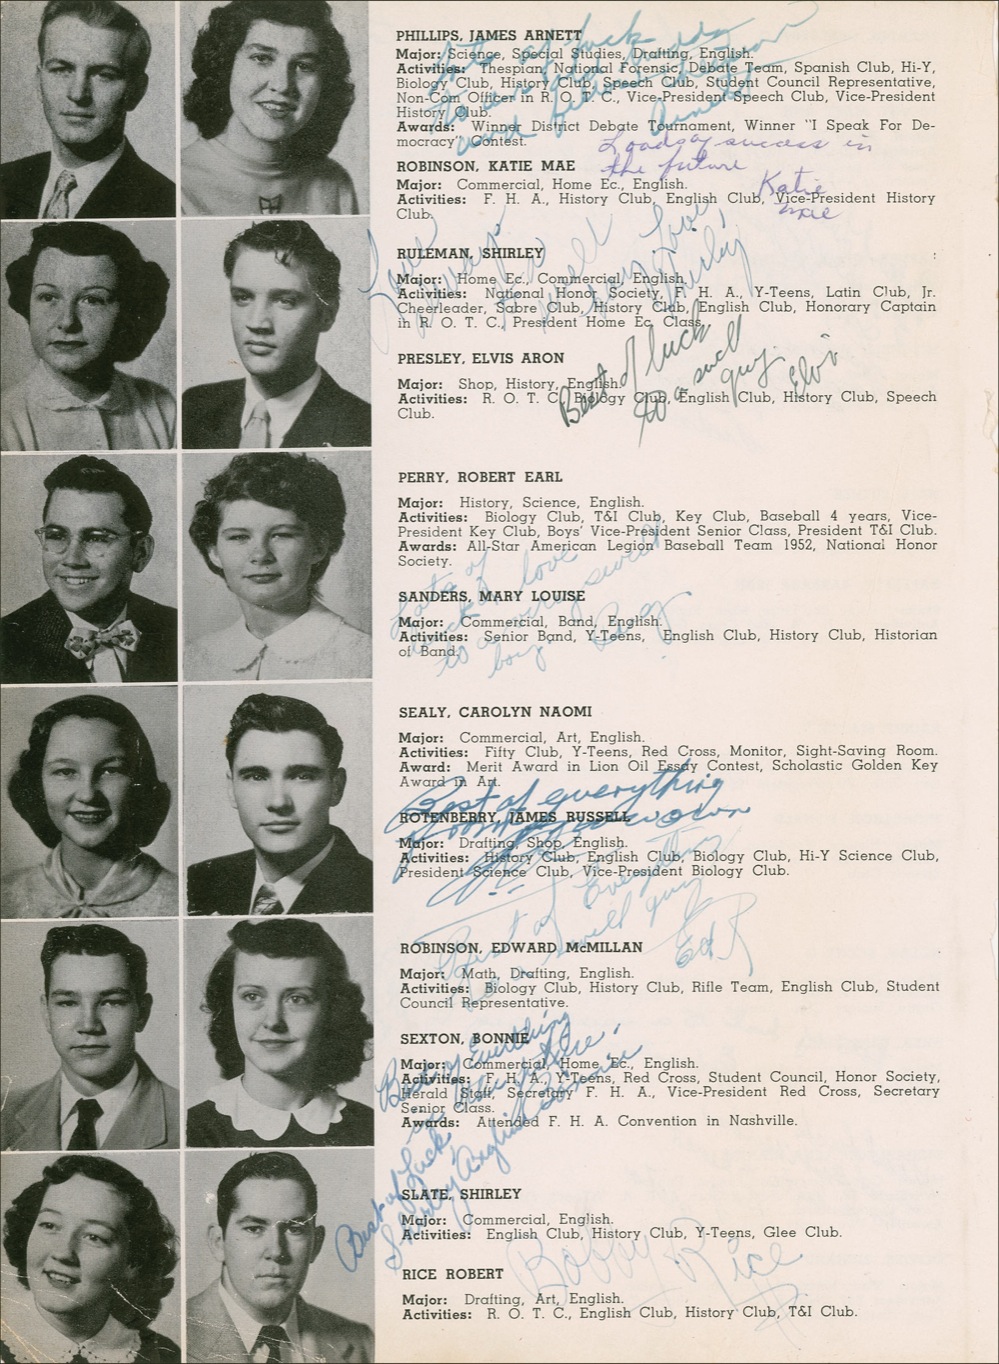 PHILLIPS, JAMES ARNETT
Major: Science, Special Studies, Drafting, English.
Activities: Thespian, National Forensic, Debate Team, Spanish Club, Hi-Y,
Biology Club, History Club, Speech Club, Student Council Representative,
Non-Com Officer in R. O. T. C., Vice-President Speech Club, Vice-President
History Club.
Awards: Winner District Debate Tournament, Winner "I Speak For De-
mocracy" Contest.
Loads of success in
the future
Katie
Mae
ROBINSON, KATIE MAE
Major: Commercial, Home Ec., English.
Activities: F. H. A., History Club, English Club, Vice-President History
Club.
RULEMAN, SHIRLEY
Major: Home Ec., Commercial, English.
Activities: National Honor Society, F. H. A., Y-Teens, Latin Club, Jr.
Cheerleader, Sabre Club, History Club, English Club, Honorary Captain
in R. O. T. C., President Home Ec. Class.
Love
Shirley
PRESLEY, ELVIS ARON
Major: Shop, History, English.
Activities: R. O. T. C., Biology Club, English Club, History Club, Speech
Club.
Best of luck
to a swell
guy.
Elvis
PERRY, ROBERT EARL
Major: History, Science, English.
Activities: Biology Club, T&I Club, Key Club, Baseball 4 years, Vice-
President Key Club, Boys' Vice-President Senior Class, President T&I Club.
Awards: All-Star American Legion Baseball Team 1952, National Honor
Society.
SANDERS, MARY LOUISE
Major: Commercial, Band, English.
Activities: Senior Band, Y-Teens, English Club, History Club, Historian
of Band.
Lots of
luck & love
to a very sweet
boy.
SEALY, CAROLYN NAOMI
Major: Commercial, Art, English.
Activities: Fifty Club, Y-Teens, Red Cross, Monitor, Sight-Saving Room.
Award: Merit Award in Lion Oil Essay Contest, Scholastic Golden Key
Award in Art.
Best of everything
ROTENBERRY, JAMES RUSSELL
Major: Drafting, Shop, English.
Activities: History Club, English Club, Biology Club, Hi-Y Science Club,
President Science Club, Vice-President Biology Club.
Best of Everything
to a swell guy
Ed R
ROBINSON, EDWARD McMILLAN
Major: Math, Drafting, English.
Activities: Biology Club, History Club, Rifle Team, English Club, Student
Council Representative.
SEXTON, BONNIE
Major: Commercial, Home Ec., English.
Activities: F. H. A., Y-Teens, Red Cross, Student Council, Honor Society,
Herald Staff, Secretary F. H. A., Vice-President Red Cross, Secretary
Senior Class.
Awards: Attended F. H. A. Convention in Nashville.
Best of Everything
in the future
Bonnie
SLATE, SHIRLEY
Major: Commercial, English.
Activities: English Club, History Club, Y-Teens, Glee Club.
Best of Luck,
Shirley
RICE ROBERT
Major: Drafting, Art, English.
Activities: R. O. T. C., English Club, History Club, T&I Club.
Bobby Rice